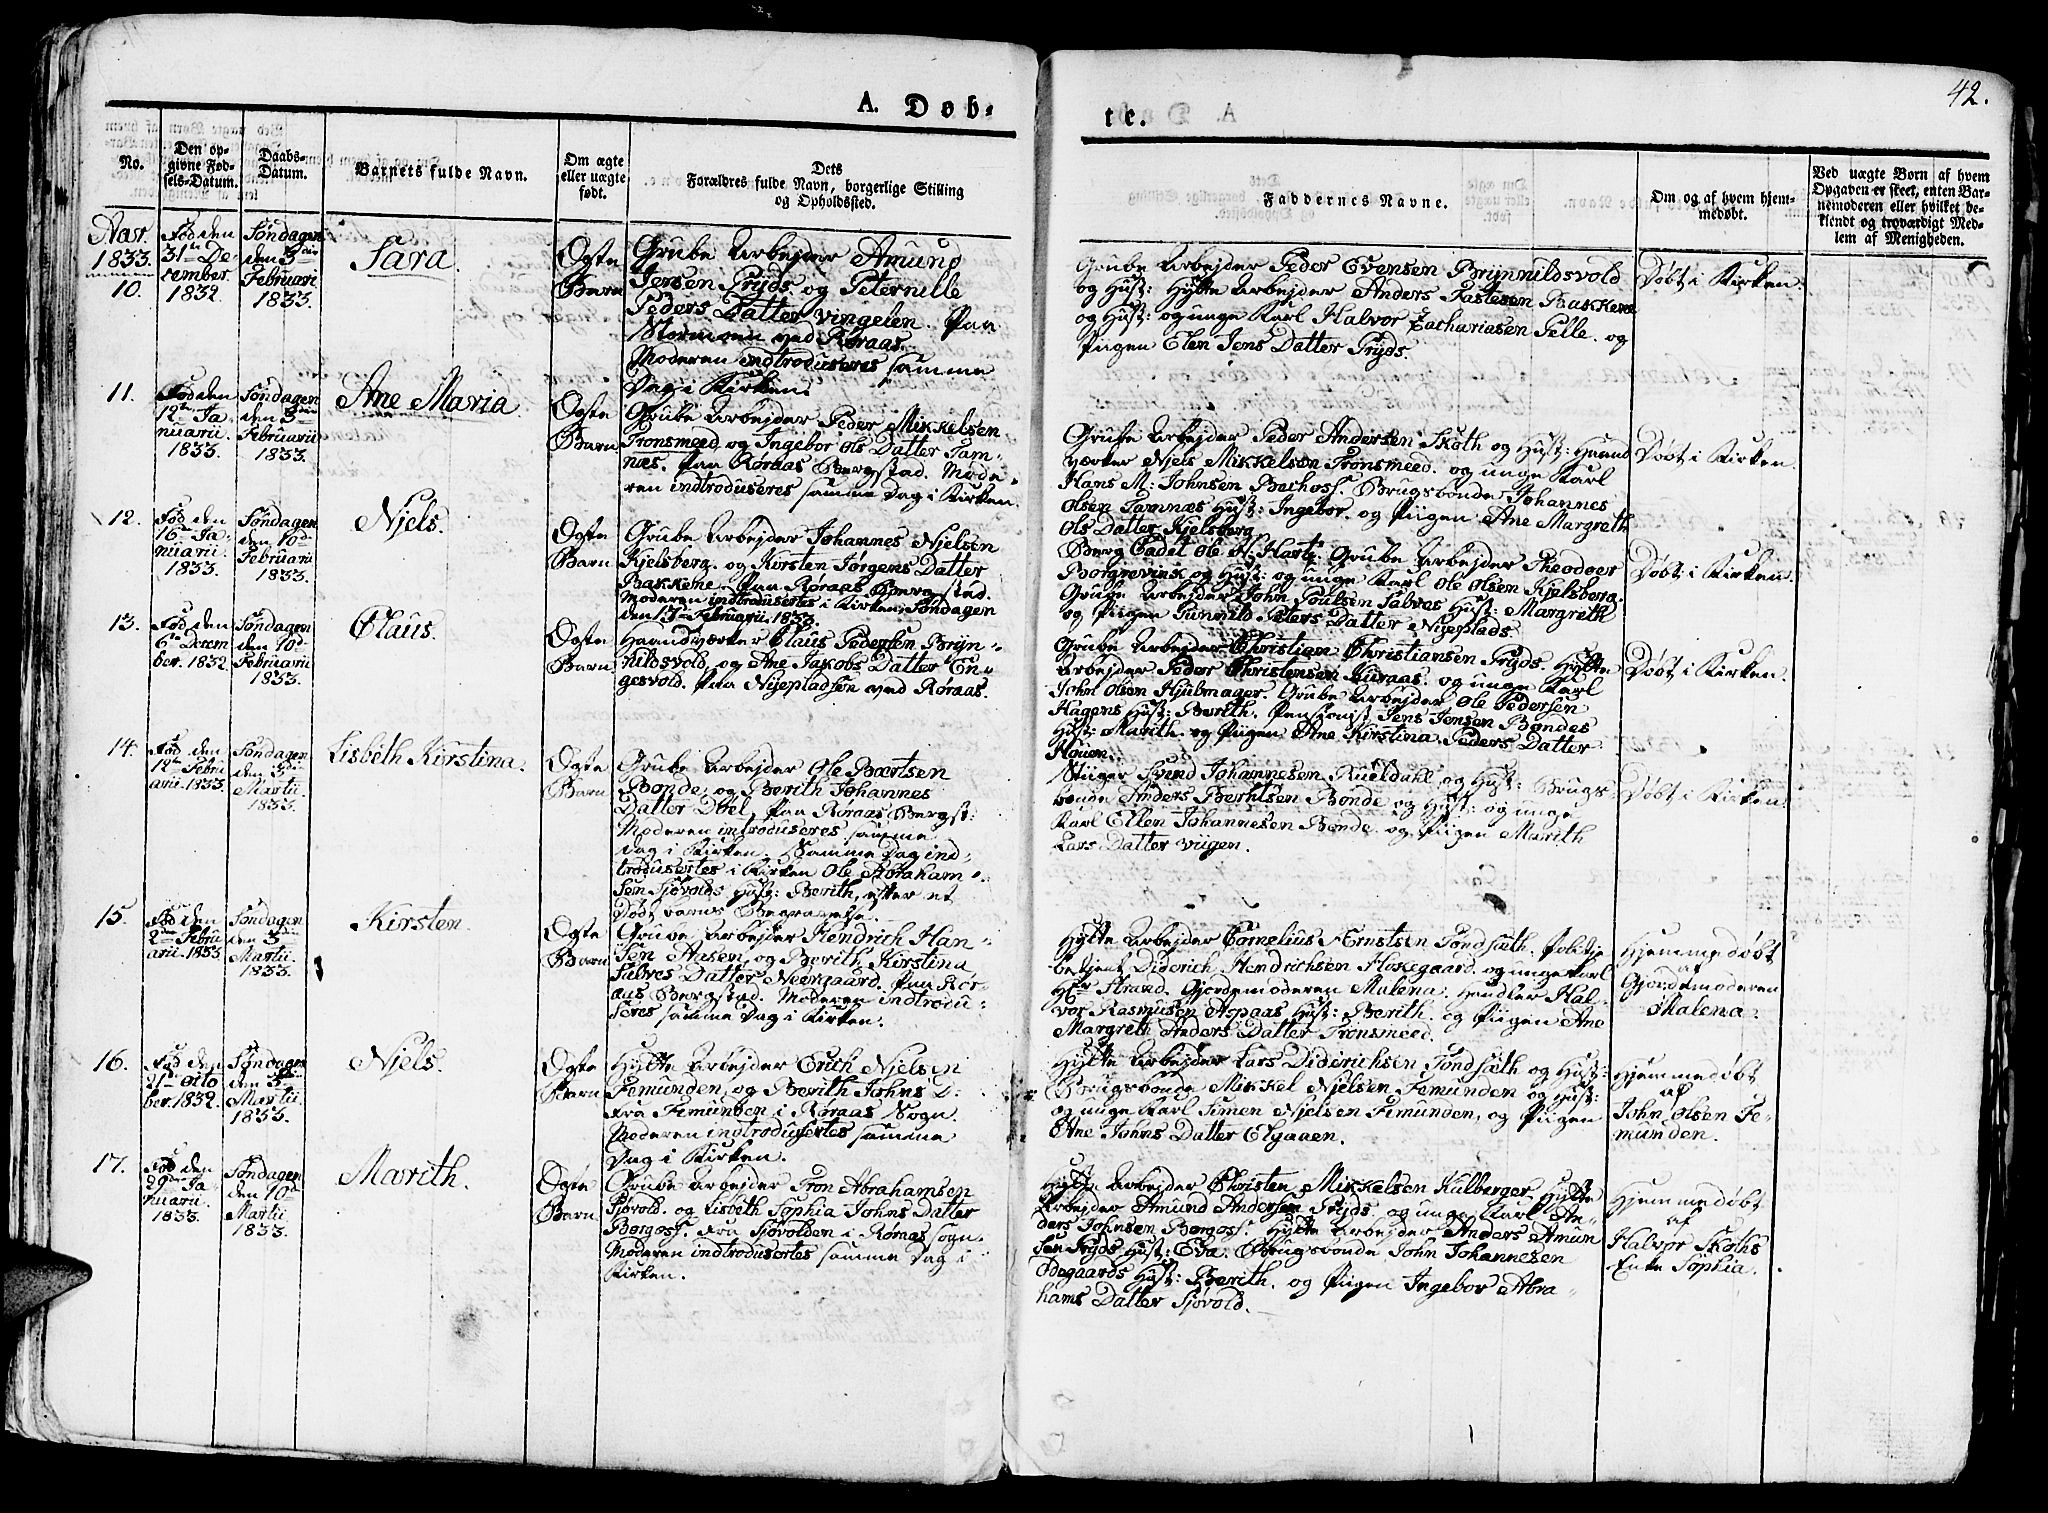 42.
A. Døb-
te.
No.
Den op-
givne Fød-
sels-Datum.
Daabs-
Datum.
Barnets fulde Navn.
Om ægte
eller uægte
født.
Dets
Forældres fulde Navn, borgerlige Stilling
og Opholdssted.
Faddernes Navne.
Om og af hvem hjem-
medøbt.
Ved uægte Børn af hvem
Opgaven er skeet, enten Bar-
nemoderen eller hvilket be-
kiendt og troværdigt Med-
lem af Menigheden.
Aar.
1833.
10.
Fød den
31te De-
cember.
1832.
Søndagen
den 3die
Februarii
1833.
Sara.
Ægte
Barn
Grube Arbejder Amund
Jensen Pryds og Peternille
Peders Datter Vingelen. Paa
Stormoen ved Røraas.
Moderen indtroduseres samme
Dag i Kirken.
Grube Arbejder Peder Evensen Brynnildsvold
og Hust: Hytte Arbejder Anders Bakkene
og Hust: og unge Karl Halvor Zachariasen Gelle. og
Piigen Elen Jens Datter Pryds.
Døbt i Kirken.
11.
Fød den
12te Ja-
nuarii.
1833.
Søndagen
den 3die
Februarii
1833.
Ane Maria.
Ægte
Barn
Grube Arbejder Peder Mikkelsen
Tronsmeed og Ingebor Ols Datter Tam-
næs. Paa Røraas Bergstad. Mode-
ren indtroduseres samme Dag i Kirken.
Grube Arbejder Peder Andersen Skoth og Hust: Haand
værker Njels Mikkelsen Tronsmeed. og unge Karl
Hans M: Johnsen Brugsbonde Johannes
Olsen Tamnæs Hust: Ingebor. og Piigen Ane Margreth
Ols Datter Kjelsberg
Døbt i Kirken.
12.
Fød den
16te Ja-
nuarii.
1833.
Søndagen
den 10de
Februarii
1833.
Njels.
Ægte
Barn
Grube Arbejder Johannes Njelsen
Kjelsberg. og Kirsten Jørgens Datter
Bakkene. Paa Røraas Bergstad.
Moderen indtrodusertes i Kirken Søndagen
den 17de Februarii 1833.
Berg Cadet Ole H: Grube Arbejder Theodoer
Borgrevink og Hust: og unge Karl Ole Olsen Kjelsberg.
Grube Arbejder John Poulsen Salvas Hust: Margreth
og Piigen Gunnild Peters Datter Nyeplads
Døbt i Kirken.
13.
Fød den
6te Decem
ber. 1832.
Søndagen
den 10de
Februarii
1833.
Claus.
Ægte
Barn
Haandværker Claus Pedersen Bryn-
nildsvold, og Ane Jakobs Datter En-
gesvold. Paa Nyepladsen ved Røraas.
Grube Arbejder Christian Christiansen Pryds. Hytte
Arbejder Peder Christensen Kuraas. og unge Karl
John Olsen Hjulmager. Grube Arbejder Ole Pedersen
Hagens Hust: Berith. Jens Jensen Bondes
Hust: Marith. og Piigen Ane Kirstina Peders Datter
Houen.
Døbt i Kirken.
14.
Fød den
12te Febru
arii 1833.
Søndagen
den 3die
Martii.
1833.
Lisbeth Kirstina.
Ægte
Barn
Grube Arbejder Ole Bertsen
Bonde, og Berith Johannes
Datter Doel, Paa Røraas Bergst:
Moderen introduseres samme
Dag i Kirken. Samme Dag ind-
trodusertes i Kirken Ole Abraham-
sen Sjøvolds Hust: Berith, efter et
Dødt barns Begravelse.
Stiiger Svend Johannesen og Hust: Brugs-
bonde Anders Bertelsen Bonde og Hust: og unge
Karl Ellen Johannesen Bonde. og Piigen Marith
Lars Datter Viigen.
Døbt i Kirken.
15.
Fød den
2den Febru
arii. 1833
Søndagen
den 3die
Martii.
1833.
Kirsten.
Ægte
Barn
Grube Arbejder Hendrich Han-
sen Aasen, og Berith Kirstina
Salves Datter Neergaard. Paa Rør-
aas Bergstad. Moderen indtrodu-
seres samme Dag i Kirken.
Hytte Arbejder Cornelius Ernstsen Tondsæth. Politje
betjent Diderich Hendrichsen Flokegaard. og unge Karl
Hr Strand. Gjordemoderen Malena. Handler Hal-
vor Rasmusen Aspaas Hust: Berith. og Piigen Ane
Margreth Anders Datter Tronsmeed.
Hjemmedøbt
af
Gjordemoderen
Malena.
16.
Fød den
21te Octo
ber. 1832.
Søndagen
den 3die
Martii.
1833.
Njels.
Ægte
Barn
Hytte Arbejder Erich Njelsen
Femunden, og Berith Johns D:
fra Femunden i Røraas Sogn.
Moderen indtrodusertes samme
Dag i Kirken.
Hytte Arbejder Lars Diderichsen Tondsæth og Hust:
Brugsbonde Mikkel Njelsen Femunden og Hust:
og unge Karl Simen Njelsen Femunden, og Piigen
Ane Johns Datter Elgaaen.
Hjemmedøbt
af
John Olsen Fe-
munden.
17.
Fød den
29de Ja-
nuarii
1833.
Søndagen
den 10de
Martii
1833.
Marith.
Ægte
Barn
Grube Arbejder Tron Abrahamsen
Sjøvold. og Lisbeth Sophia Johns Datter
Borgos. fra Sjøvolden i Røraas sogn.
Moderen indtrodusertes samme Dag i
Kirken.
Hytte Arbejder Christen Mikkelsen Kulberger. Hytte
Arbejder Amund Andersen Pryds. og unge Karl An-
ders Johnsen Borgos. Hytte Arbejder Anders Amun
sen Pryds Hust: Eva. Brugsbonde John Johannesen
Ødegaards Hust: Berith. og Piigen Ingebor Abra-
hams Datter Sjøvold.
Hjemmedøbt
af
Halvor Skoths
Enke Sophia.